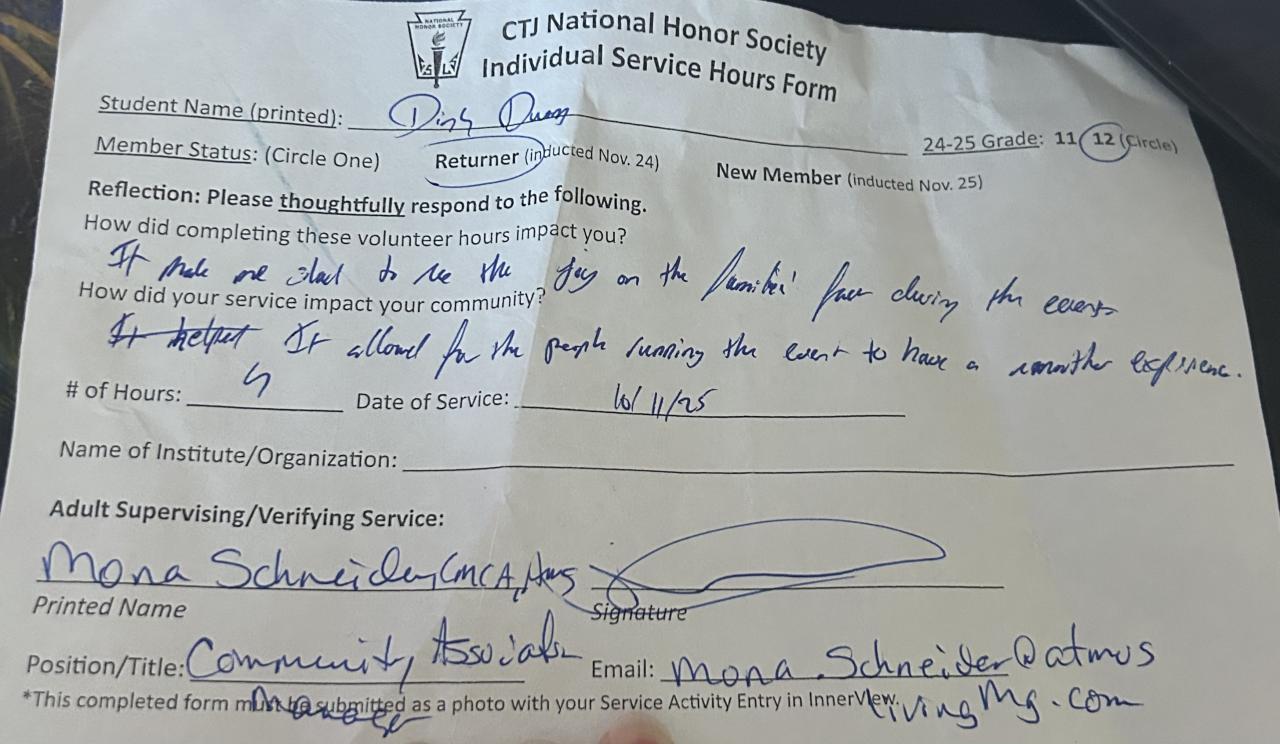 NATIONAL HONOR SOCIETY
CTJ National Honor Society
Individual Service Hours Form
Student Name (printed): Dinh
24-25 Grade: 11 12 (Circle)
Member Status: (Circle One) Returner (inducted Nov. 24) New Member (inducted Nov. 25)
Reflection: Please thoughtfully respond to the following.
How did completing these volunteer hours impact you?
It made me glad to see the joy on the families' face during the event
How did your service impact your community?
It helped It allowed for the people running the event to have a smoother experience.
# of Hours: Date of Service: 10/11/25
Name of Institute/Organization:
Adult Supervising/Verifying Service:
Mona Schneider, CMCA, AMS
Printed Name Signature
Position/Title: Community Association Email: Mona.Schneider@atmos
*This completed form must be submitted as a photo with your Service Activity Entry in InnerView.
Manager livingMg.com